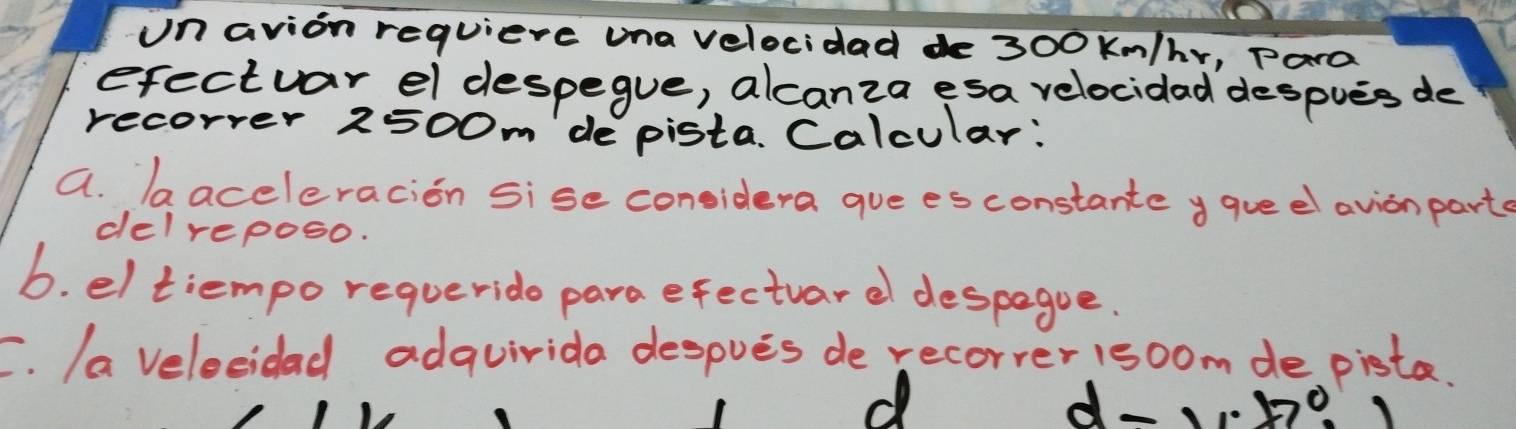 Un avión requiere una velocidad de 300 Km/hr, Para
efectuar el despegue, alcanza esa velocidad después de
recorrer 2500m de pista. Calcular:
a. la aceleración si se considera que es constante y que el avión parte
del reposo.
b. el tiempo requerido para efectuar el despegue.
c. la velocidad adquirida después de recorrer 1500m de pista.
d d =